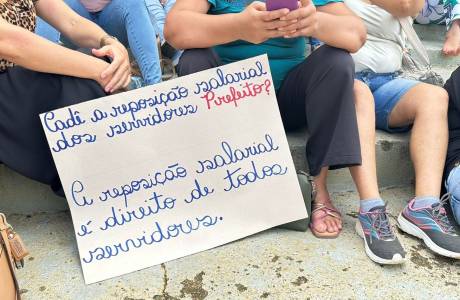 Cadê a reposição salarial
dos servidores Prefeito?
A reposição salarial
é direito de todos
servidores.